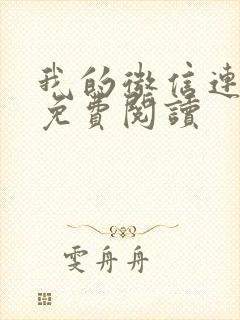 我的微信連
免費閱讀
雯舟舟